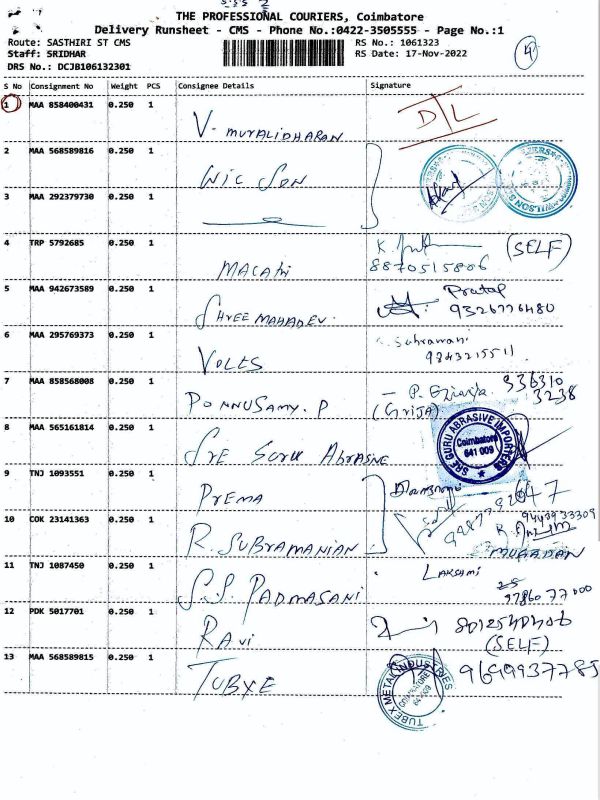 THE PROFESSIONAL COURIERS, Coimbatore
Delivery Runsheet - CMS - Phone No.:0422-3505555 - Page No.:1
Route: SASTHIRI ST CMS
Staff: SRIDHAR
DRS No.: DCJB106132301
RS No.: 1061323
RS Date: 17-Nov-2022
4
S No Consignment No Weight PCS Consignee Details Signature
1 MAA 858400431 0.250 1 V. MURALIDHARAN D/L
2 MAA 568589816 0.250 1 WILSON
3 MAA 292379730 0.250 1
4 TRP 5792685 0.250 1 MACATHI K. (SELF)
8870515806
5 MAA 942673589 0.250 1 SHREE MAHADEV. Pratap
9326776480
6 MAA 295769373 0.250 1 VOLTS
9843215511
7 MAA 858568008 0.250 1 PONNUSAMY. P - P. Girija 336310
(Girija) 3238
8 MAA 565161814 0.250 1 SRE GURU ABRASIVE
SREE GURU ABRASIVE IMPORTERS
Coimbatore
641 009
9 TNJ 1093551 0.250 1 PREMA
10 COK 23141363 0.250 1 R. SUBRAMANIAN 9443933309
11 TNJ 1087450 0.250 1 S.S. PADMASANI LAKSHMI
97860 77000
12 PDK 5017701 0.250 1 RAVI
(SELF)
13 MAA 568589815 0.250 1 TUBXE 9699937785
TUBEX METAL INDUSTRIES
COIMBATORE